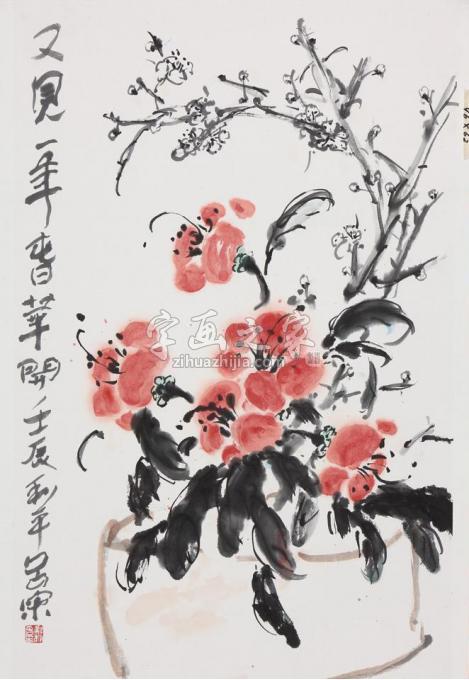 又见一年春華開壬辰利平
字画之家
zihuazhijia.com